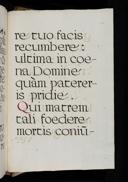 re tuo facis
recumbere:
ultima in coe-
na Domine
quàm paterer-
is pridie.
Qui matrem
tali foedere
mortis coniu-